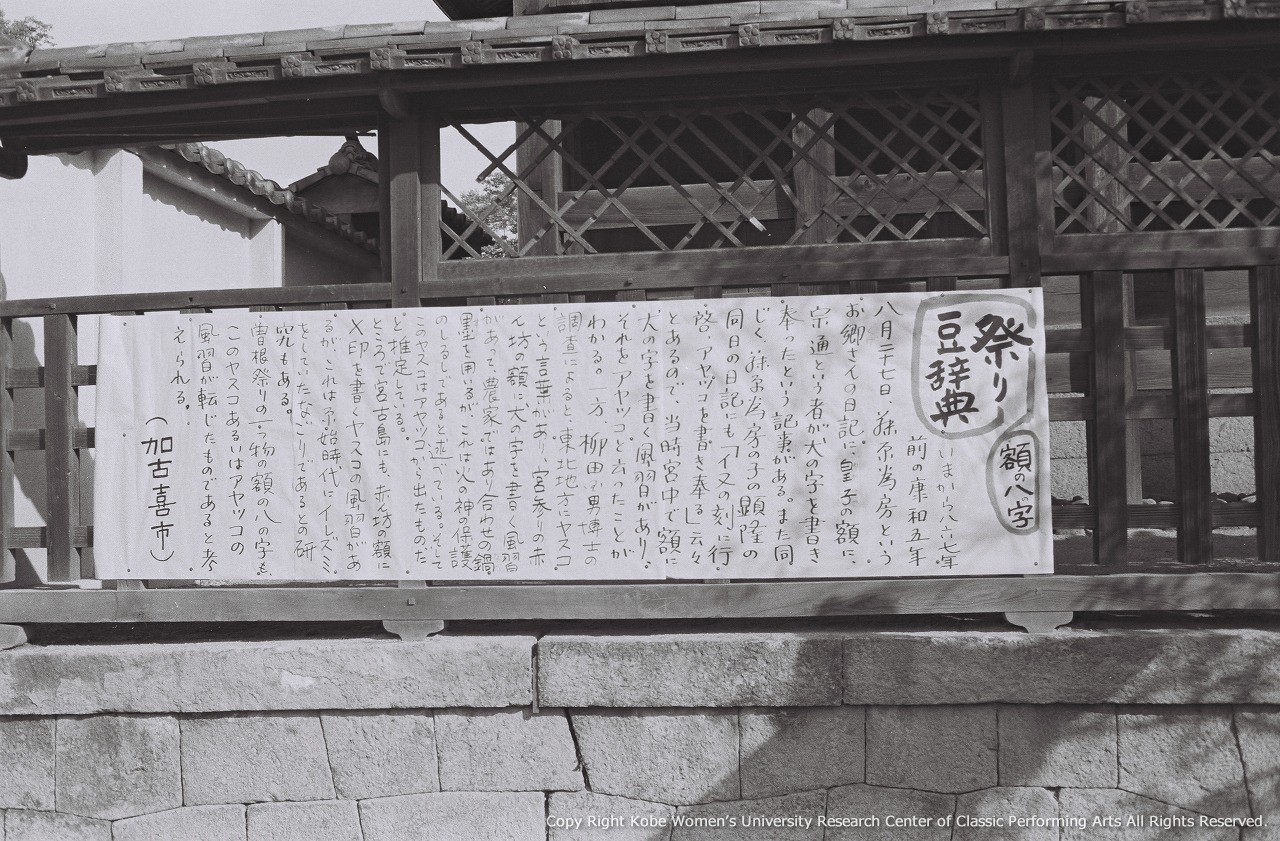 祭り豆辞典
額の八の字
いまから八六七年
前の康和五年
八月二十七日、藤原為房という
お郷さんの日記に、皇子の額に、
宗通という者が犬の字を書き
奉ったという記事がある。また同
じく、藤原為房の子の顕隆の
同日の日記にも「イ又の刻に行
啓、アヤツコを書き奉る」云々
とあるので、当時宮中で額に
犬の字を書く風習があり、
それをアヤツコと云ったことが
わかる。一方、柳田国男博士の
調査によると、東北地方にヤスコ
という言葉があり、宮参りの赤
ん坊の額に犬の字を書く風習
があって、農家ではあり合わせの鍋
墨を用いるが、これは火の神の保護
のしるしであると述べている。そして
このヤスコはアヤツコから出たものだ
と推定している。
ところで宮古島にも、赤ん坊の額に
×印を書くヤスコの風習があ
るが、これは原始時代にイレズミ
をしていたなごりであるとの研
究もある。
曽根祭りの一つ物の額の八の字も、
このヤスコあるいはアヤツコの
風習が転じたものであると考
えられる。
（加古喜市）
Copy Right Kobe Women's University Research Center of Classic Performing Arts All Rights Reserved.